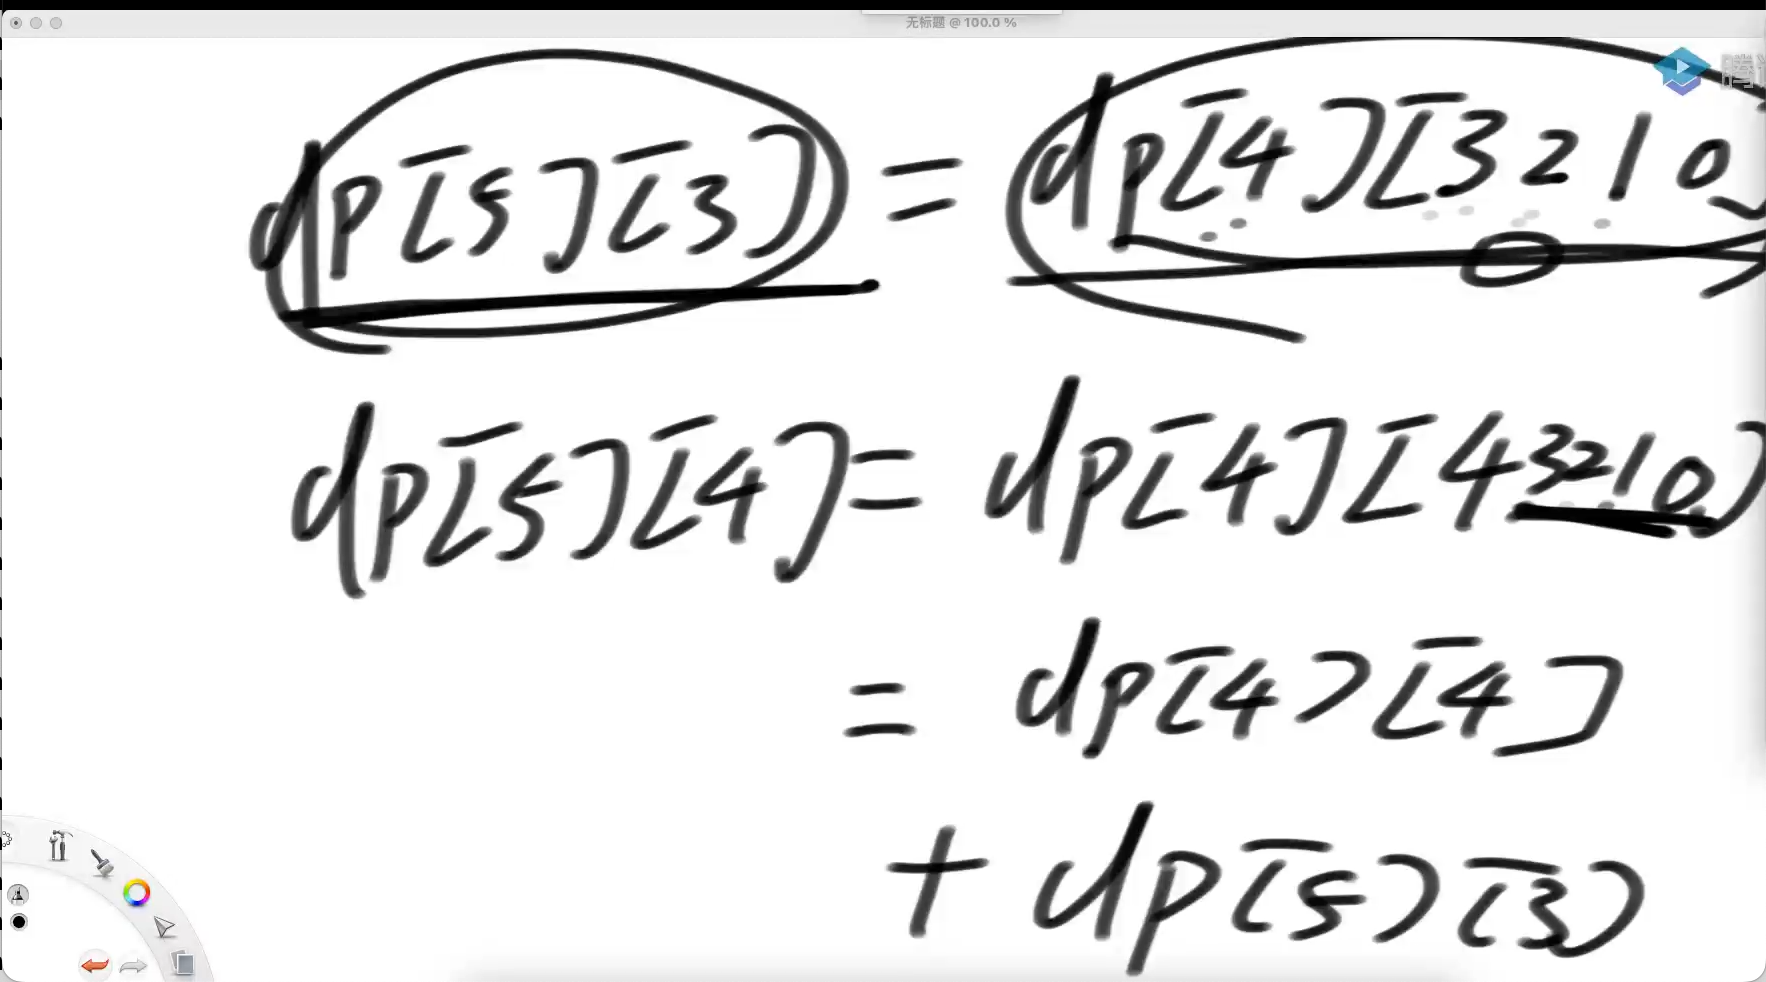 无标题 @ 100.0 %
dp[5][3] = dp[4][3 2 1 0]
dp[5][4] = dp[4][4 3 2 1 0]
= dp[4][4]
+ dp[5][3]